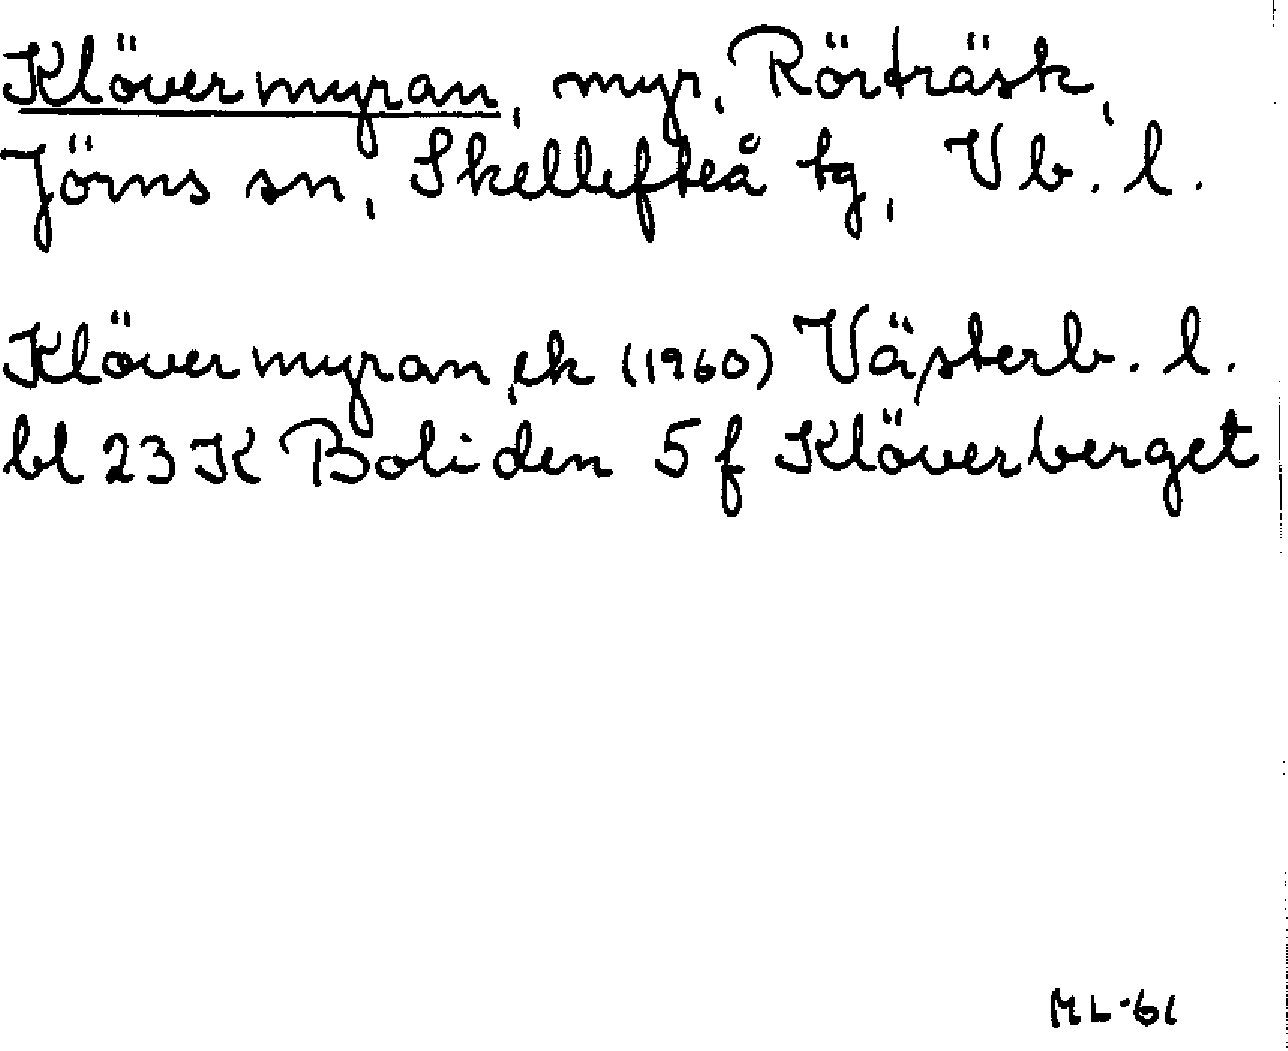 Klövermyran, myr, Rörträsk,
Jörns sn, Skellefteå tg, Vb. l.
Klövermyran, ek (1960) Västerb. l.
bl 23 K Boliden 5 f Klöverberget
ML-61